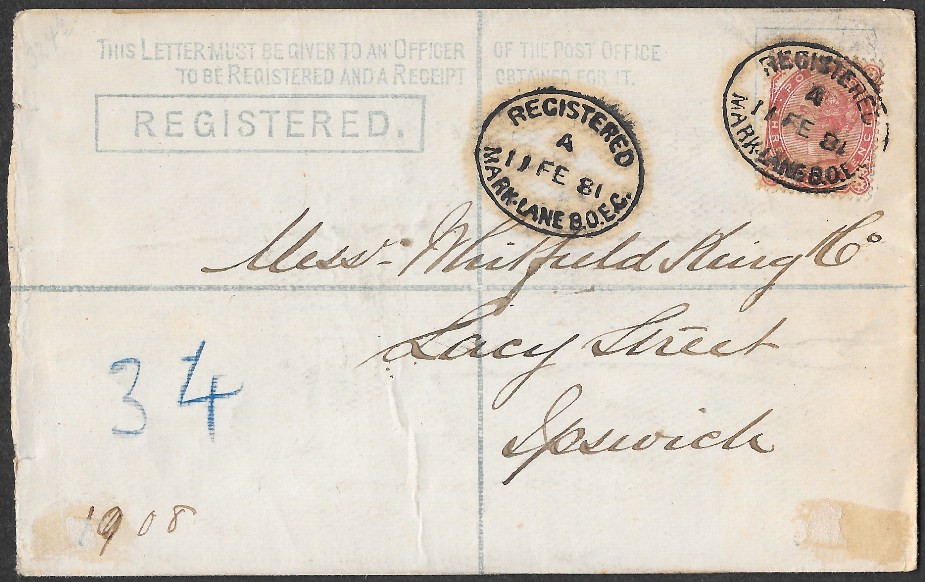 THIS LETTER MUST BE GIVEN TO AN OFFICER OF THE POST OFFICE
TO BE REGISTERED AND A RECEIPT OBTAINED FOR IT.
REGISTERED.
REGISTERED
A
11 FE 81
MARK-LANE B.O.E.C.
REGISTERED
A
11 FE 81
MARK-LANE B.O.E.C.
Messrs Whitfield King & Co
Lacy Street
Ipswich
34
1908